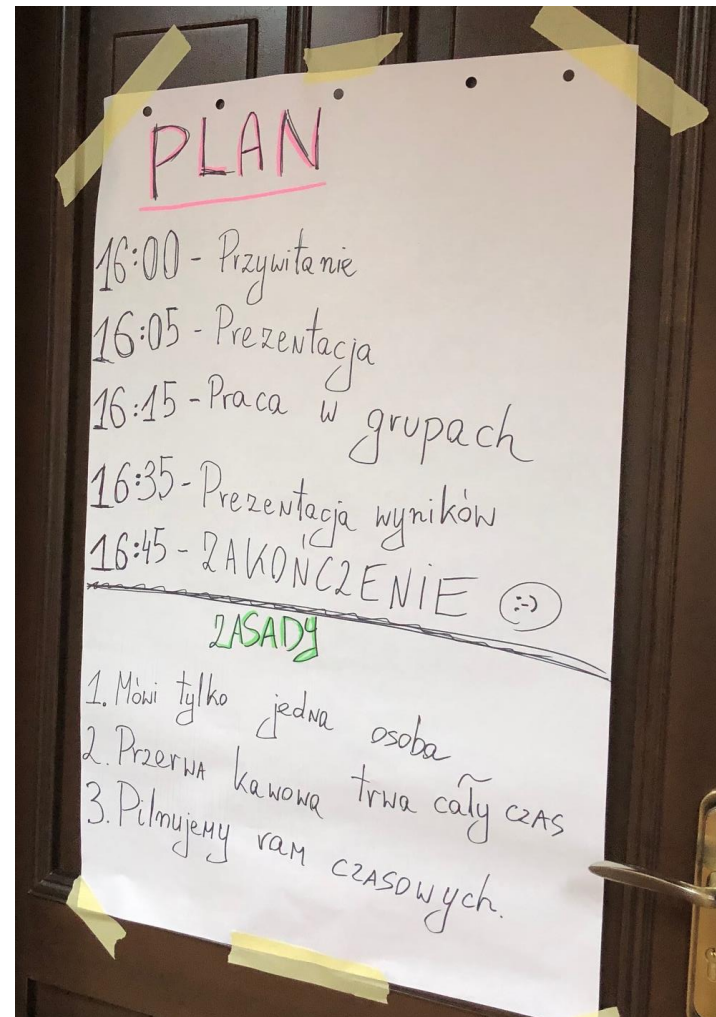 PLAN
16:00 - Przywitanie
16:05 - Prezentacja
16:15 - Praca w grupach
16:35 - Prezentacja wyników
16:45 - ZAKOŃCZENIE :-)
ZASADY
1. Mówi tylko jedna osoba
2. Przerwa kawowa trwa cały czas
3. Pilnujemy ram czasowych.